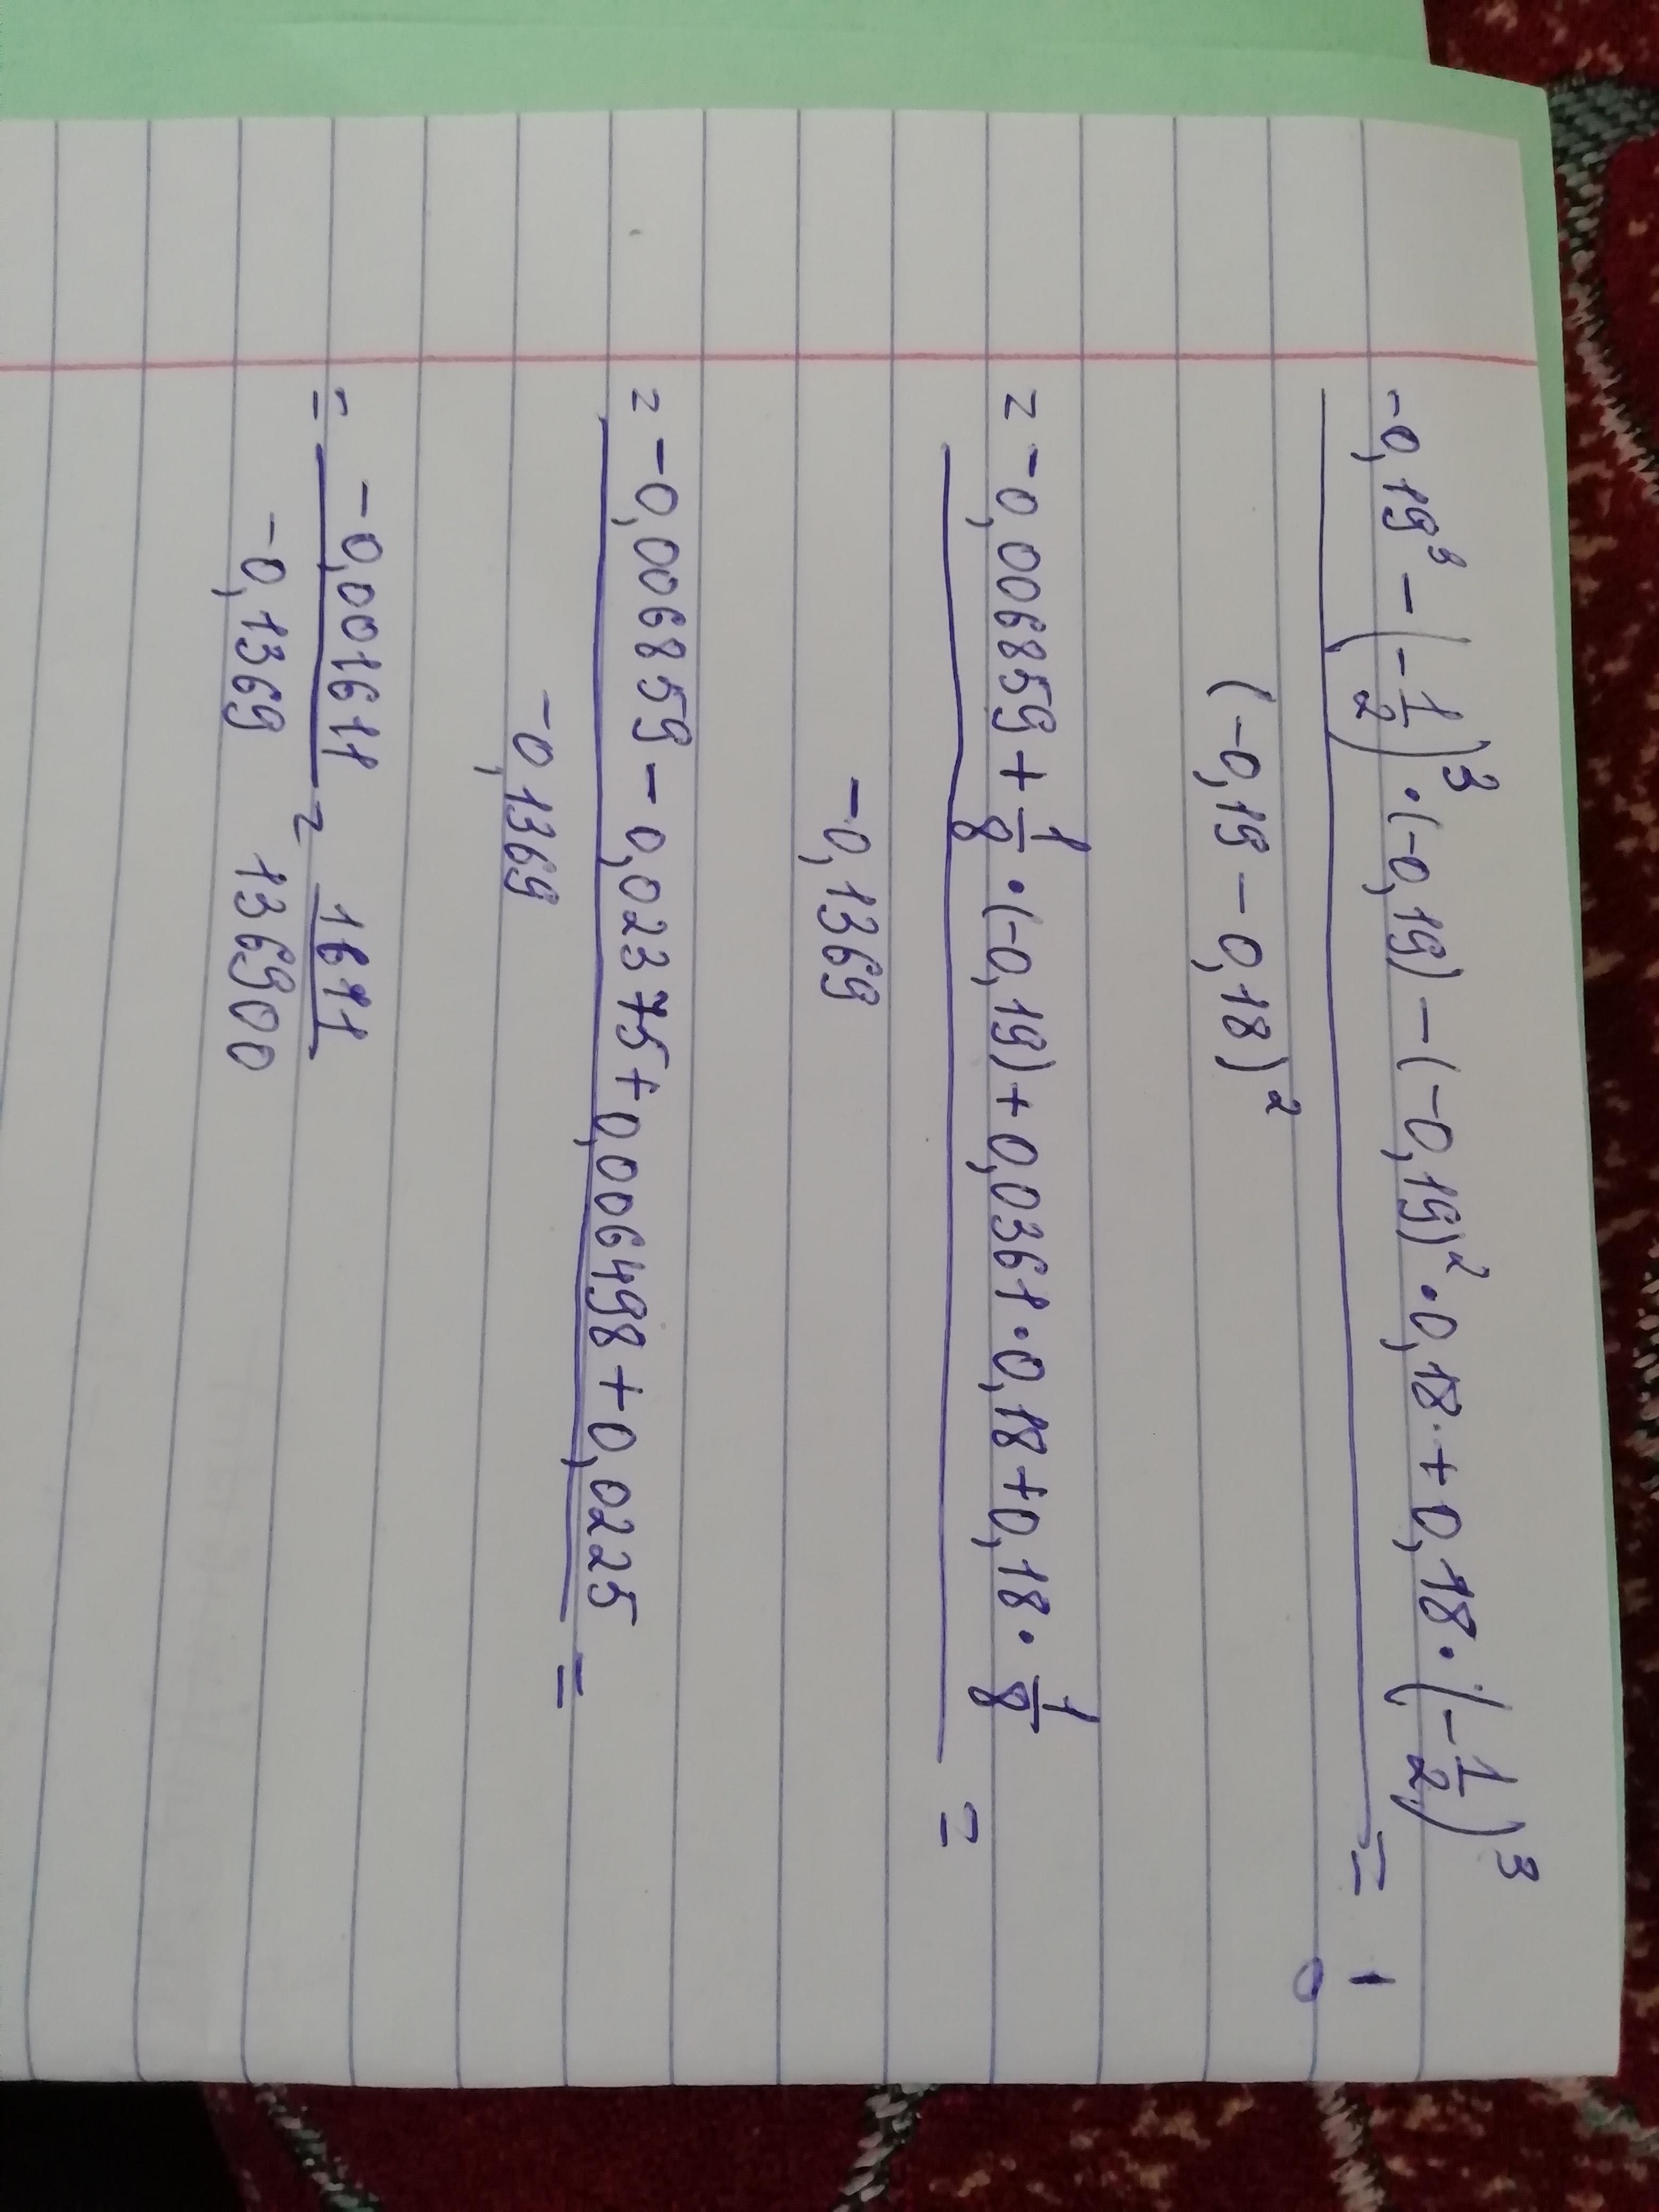 -0,19³ - (-1/2)³ · (-0,19) - (-0,19)² · 0,18 · + 0,18 · (-1/2)³ =
(-0,19 - 0,18)²
= -0,006859 + 1/8 · (-0,19) + 0,0361 · 0,18 + 0,18 · 1/8 =
-0,1369
= -0,006859 - 0,02375 + 0,006498 + 0,0225 =
-0,1369
= -0,001611 = 1611
-0,1369 136900